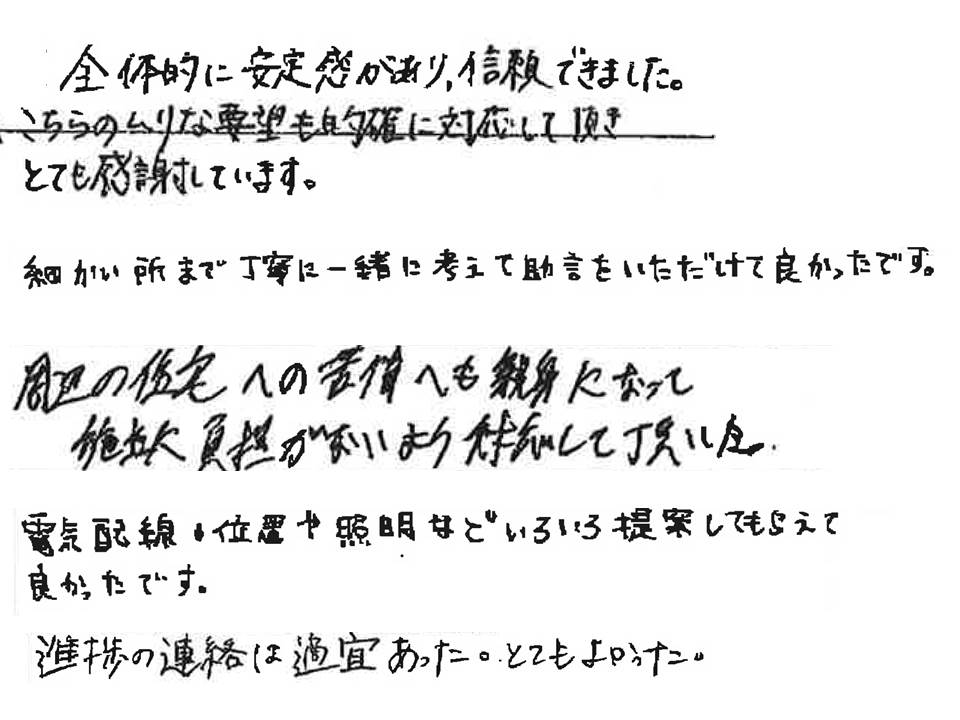 全体的に安定感があり、信頼できました。
こちらのムリな要望も的確に対応して頂き
とても感謝しています。
細かい所まで丁寧に一緒に考えて助言をいただけて良かったです。
周辺の住宅への苦情へも親身になって
施主に負担がないよう対応して頂いた。
電気配線の位置や照明などいろいろ提案してもらえて
良かったです。
進捗の連絡は適宜あった。とてもよかった。